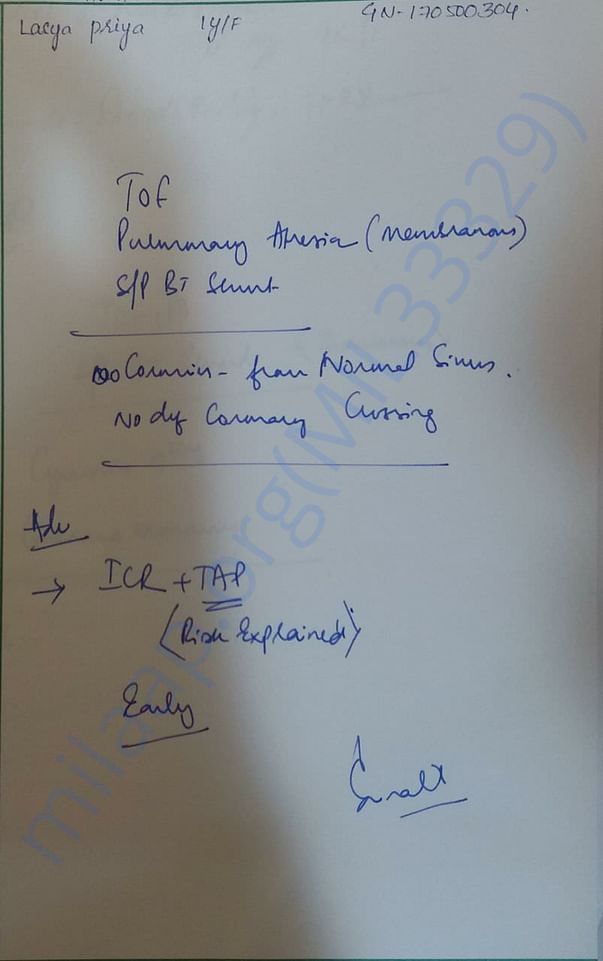 Lasya priya 1y/F GN-170500304.
TOF
Pulmonary Atresia (Membranous)
S/P BT Shunt
Coronaries - from Normal Sinus.
No Coronary Crossing
Adv
→ ICR + TAP
(Risk Explained)
Early
milaap.org(MIL33329)